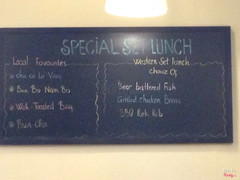 SPECIAL SET LUNCH
Local Favourites
Cha ca La Vong
Bun Bo Nam Bo
Wok-Tossed
Bun Cha
Western Set Lunch
choice Of
Beer battered Fish
Grilled chicken
BBQ Pork Rib